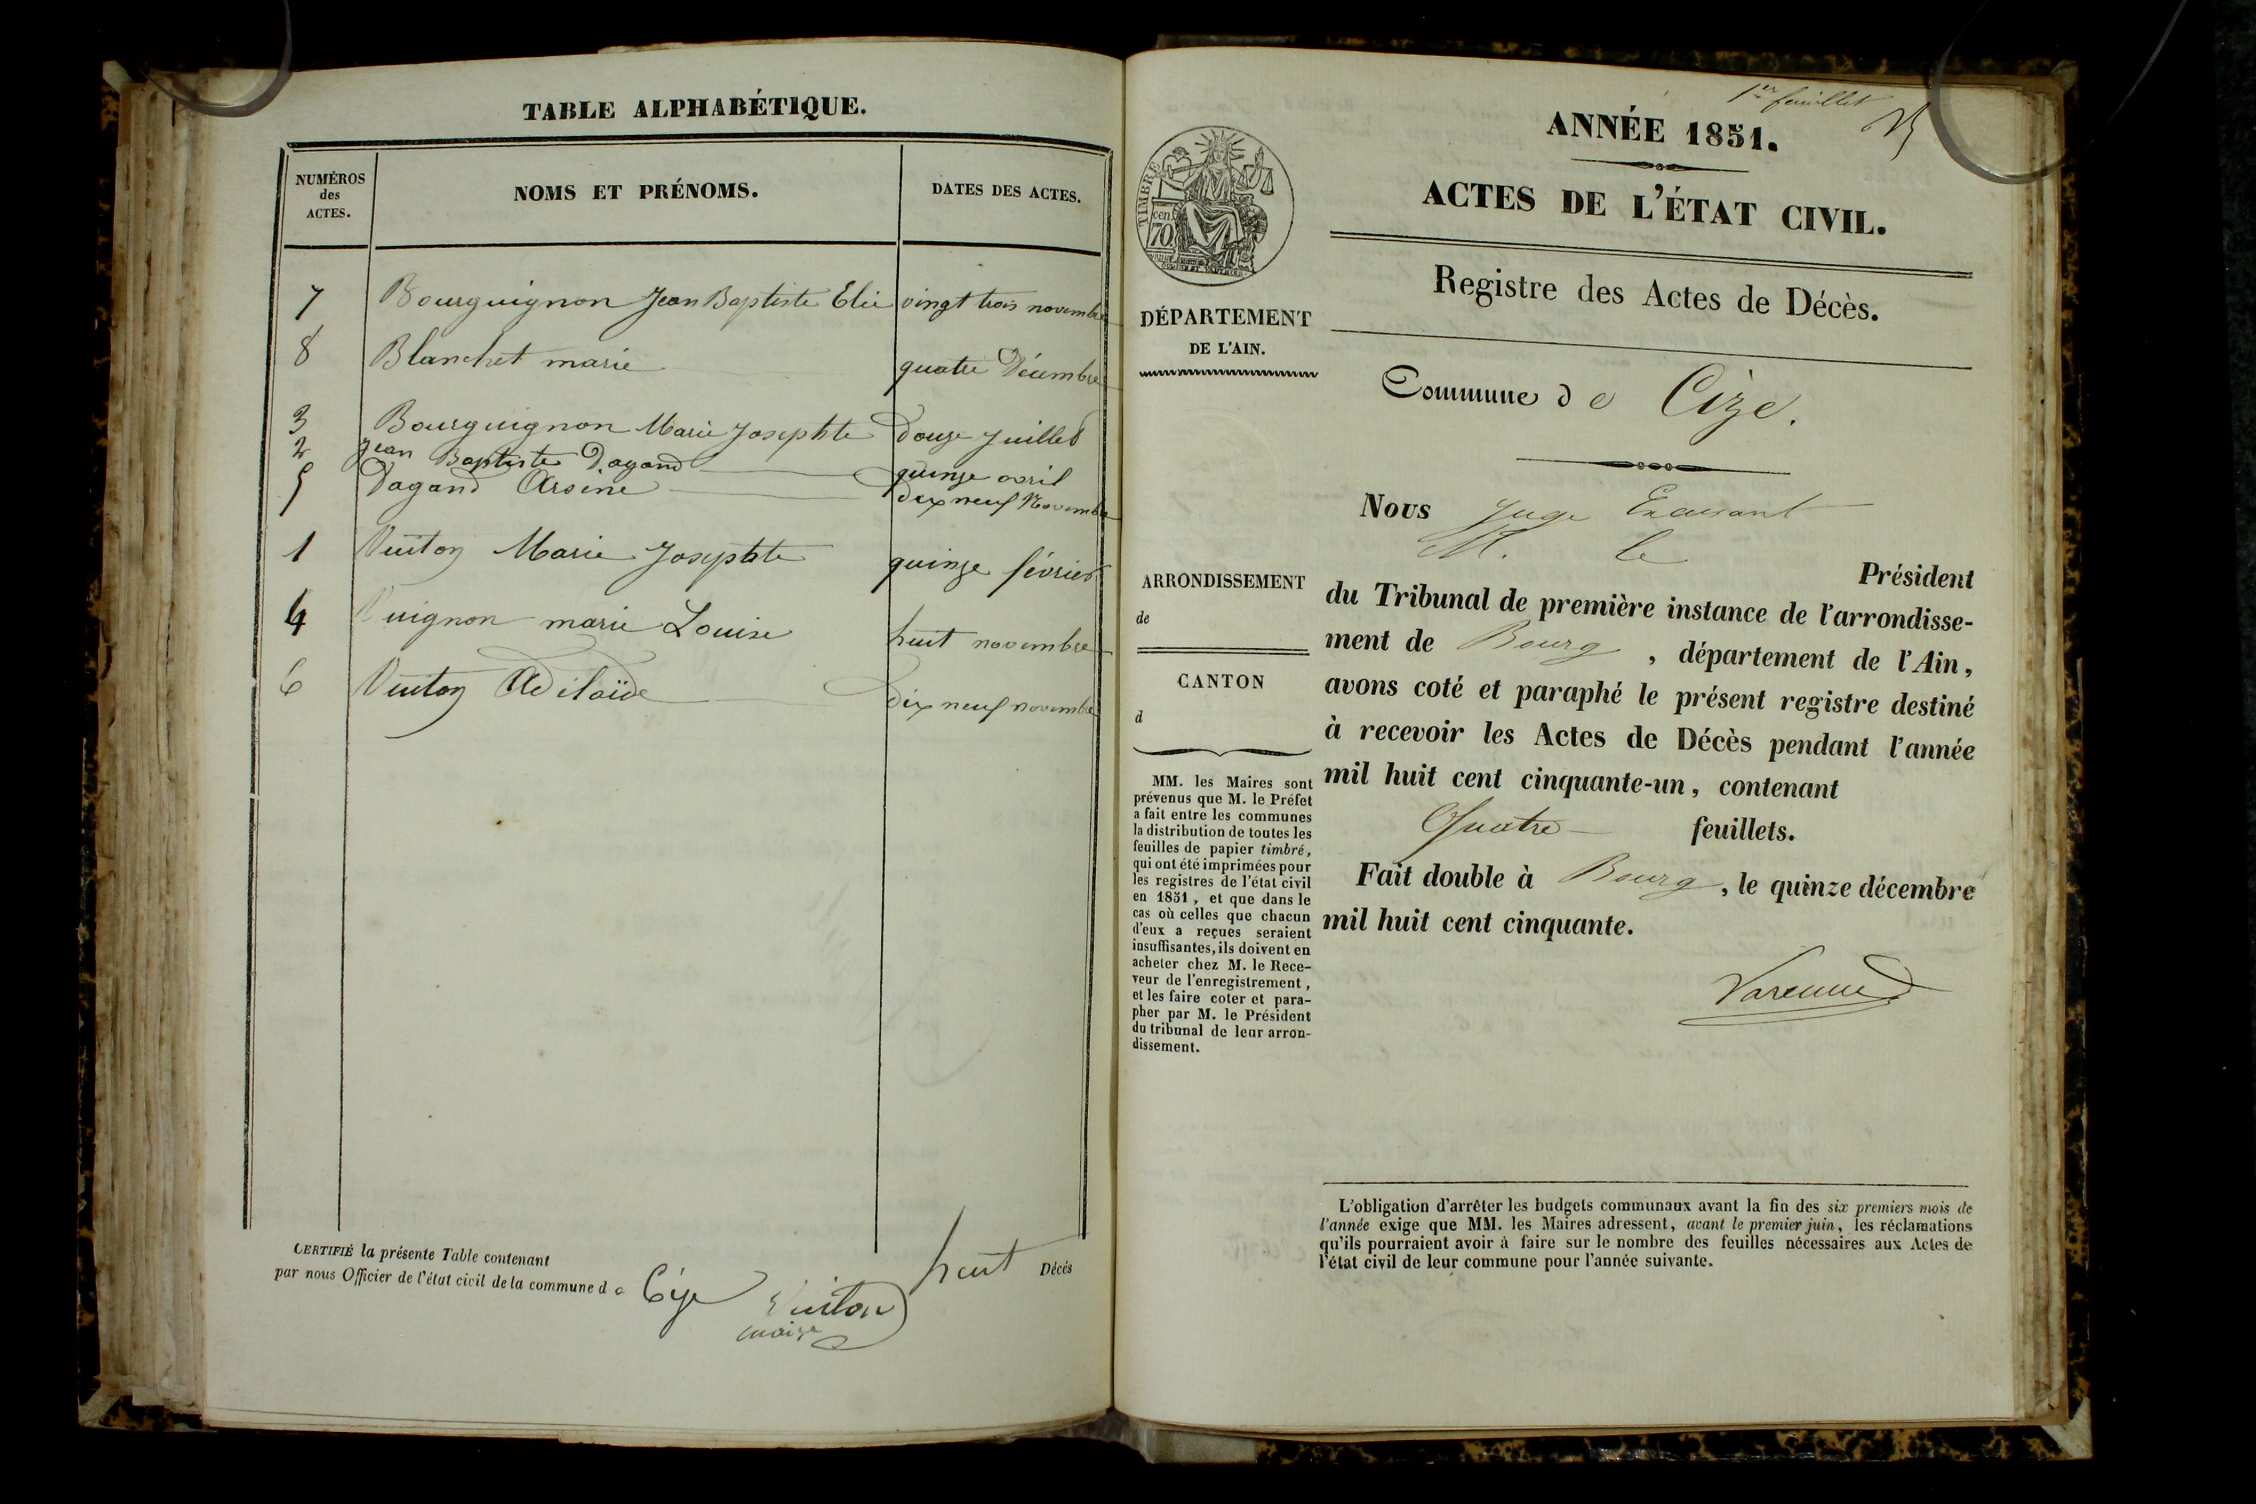 TABLE ALPHABÉTIQUE.
NUMÉROS
des
ACTES.
NOMS ET PRÉNOMS.
DATES DES ACTES.
7 Bourguignon Jean Baptiste Elie vingt trois novembre
8 Blanchet marie quatre Décembre
3 Bourguignon Marie Josephte douze Juillet
2 Jean Baptiste Dagand quinze avril
5 Dagand Arsène dix neuf Novembre
1 Vuiton Marie Josephte quinze février
4 Vuignon marie Louise huit novembre
6 Vuiton Adélaïde dix neuf novembre
CERTIFIÉ la présente Table contenant huit Décés
par nous Officier de l'état civil de la commune de Cize
Vuiton
maire
1er feuillet
ANNÉE 1851.
ACTES DE L'ÉTAT CIVIL.
Registre des Actes de Décès.
TIMBRE
cen.
70
DÉPARTEMENT
DE L'AIN.
Commune de Cize.
Nous Juge
M. le
Président
du Tribunal de première instance de l'arrondisse-
ment de Bourg, département de l'Ain,
avons coté et paraphé le présent registre destiné
à recevoir les Actes de Décès pendant l'année
mil huit cent cinquante-un, contenant
Quatre feuillets.
Fait double à Bourg, le quinze décembre
mil huit cent cinquante.
Varenne
ARRONDISSEMENT
de
CANTON
d
MM. les Maires sont
prévenus que M. le Préfet
a fait entre les communes
la distribution de toutes les
feuilles de papier timbré,
qui ont été imprimées pour
les registres de l'état civil
en 1851, et que dans le
cas où celles que chacun
d'eux a reçues seraient
insuffisantes, ils doivent en
acheter chez M. le Rece-
veur de l'enregistrement,
et les faire coter et para-
pher par M. le Président
du tribunal de leur arron-
dissement.
L'obligation d'arrêter les budgets communaux avant la fin des six premiers mois de
l'année exige que MM. les Maires adressent, avant le premier juin, les réclamations
qu'ils pourraient avoir à faire sur le nombre des feuilles nécessaires aux Actes de
l'état civil de leur commune pour l'année suivante.